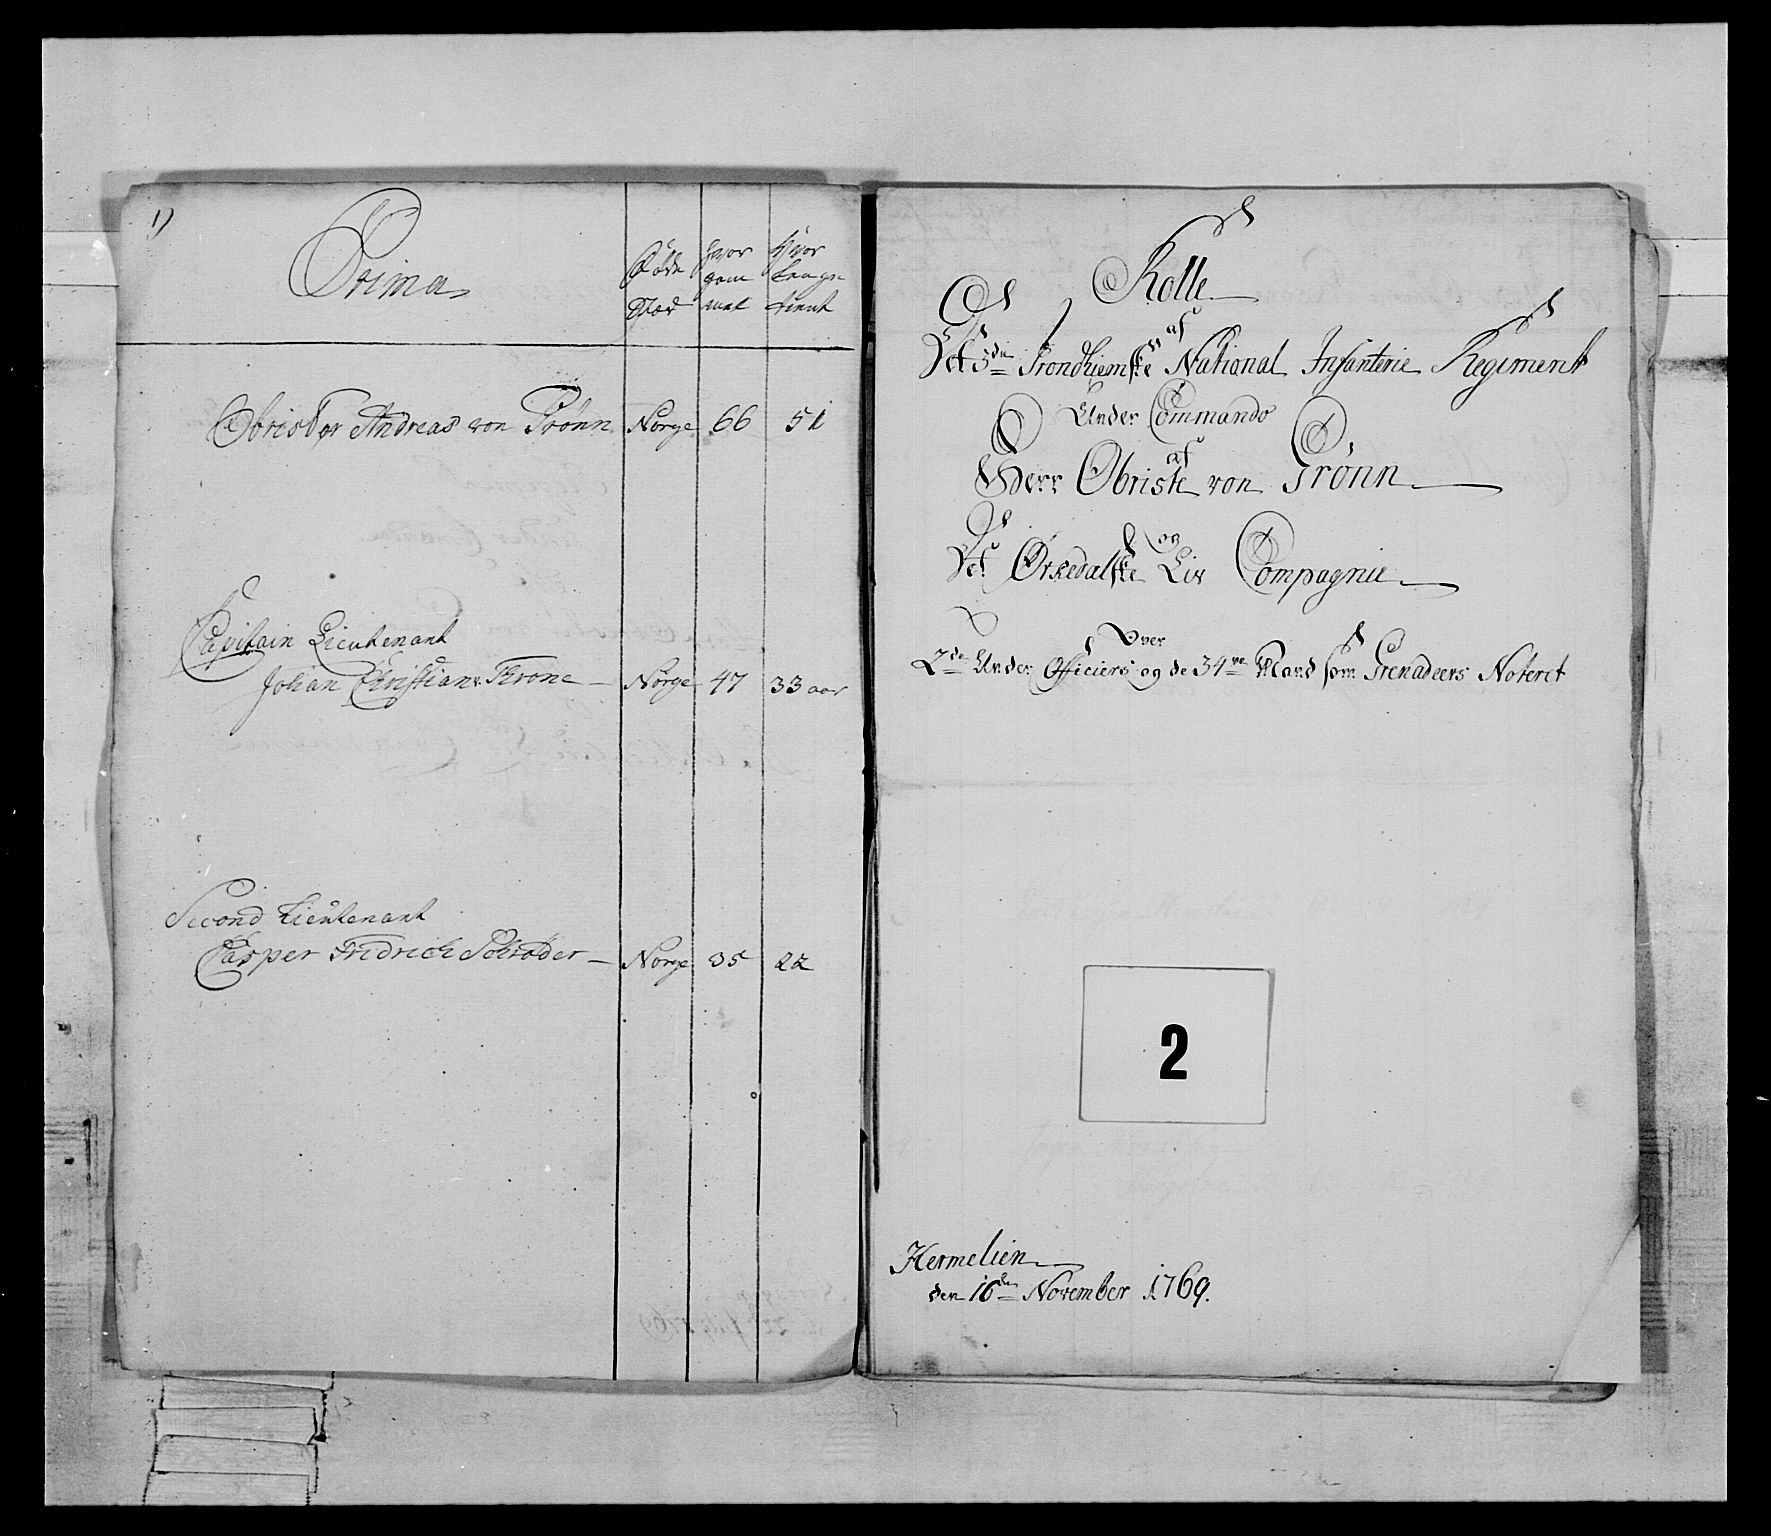 1)
Prima
Føde
Stæd
hvor
gam
mel
Hvor
lenge
tient
Obrister Andreas von Grønn Norge 66 51
Capitain Lieutenant
Johan Christian v. Krone — Norge 47 33 aar
Second Lieutenant
Casper Fridrich Schrøder — Norge 35 22
Rolle
af
Det 3die Trondhiemske National Infanterie Regiment
Under Commando
af
Herr Obriste von Grönn
og
Det Ørkedalske Liv Compagnie
Over
2de Under Officiers og de 34re Mand som Grenadeers Noteret
2
Hermelien
den 16de November 1769.